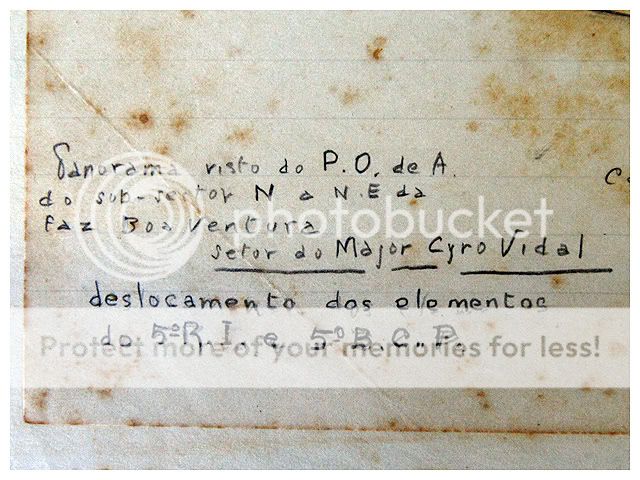 Panorama visto do P.O. de A.
do sub-sertor N a N.E da
faz Boa Ventura
setor do Major Cyro Vidal
deslocamento dos elementos
do 5º R.I. e 5º B.C.P.
photobucket
Protect more of your memories for less!